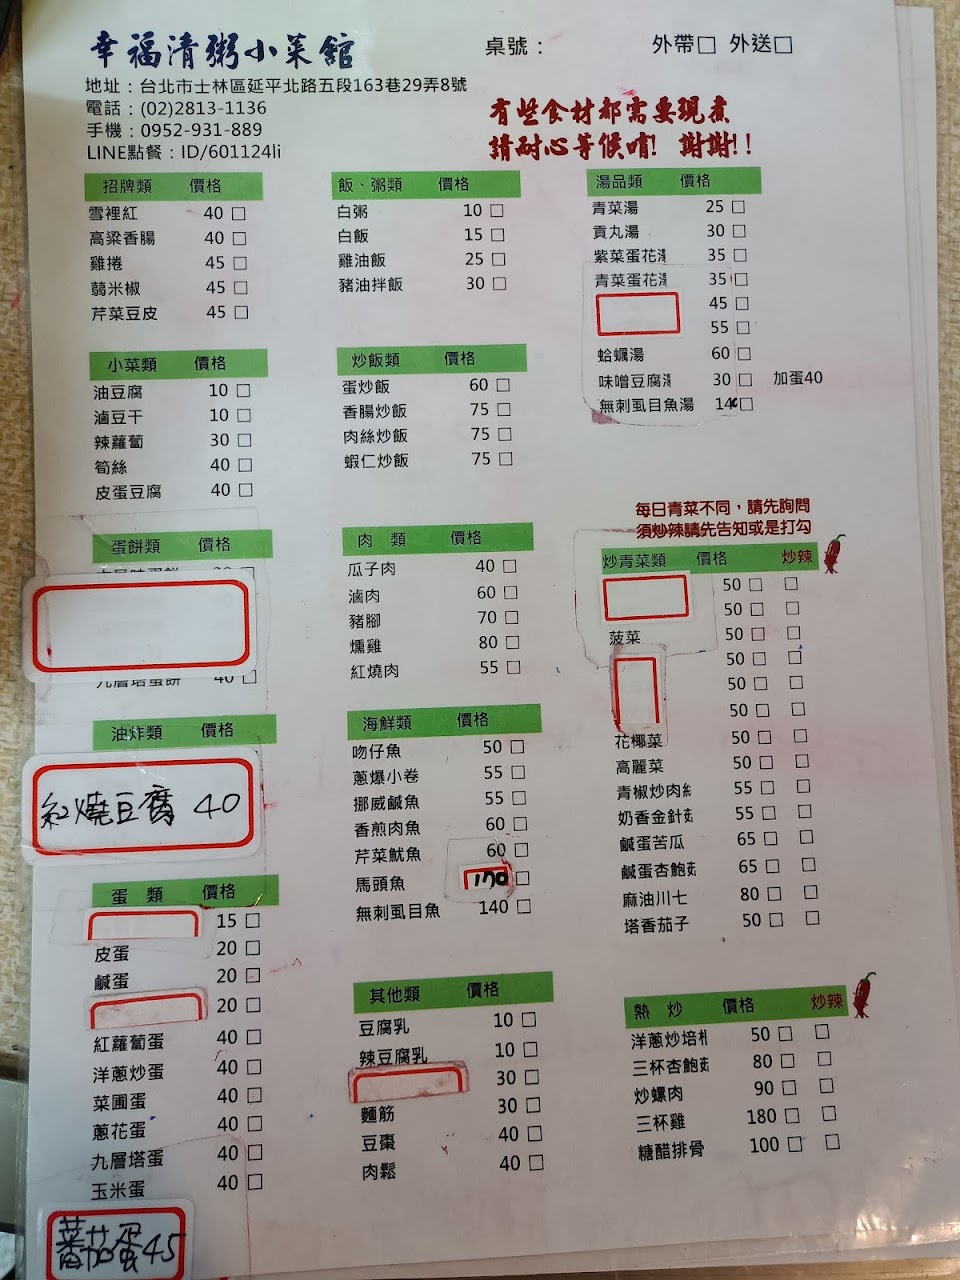 幸福清粥小菜館
桌號：
外帶□ 外送□
地址：台北市士林區延平北路五段163巷29弄8號
電話：(02)2813-1136
手機：0952-931-889
LINE點餐：ID/601124li
有些食材都需要現煮
請耐心等候唷! 謝謝!!
招牌類 價格
雪裡紅 40 □
高粱香腸 40 □
雞捲 45 □
蒻米椒 45 □
芹菜豆皮 45 □
小菜類 價格
油豆腐 10 □
滷豆干 10 □
辣蘿蔔 30 □
筍絲 40 □
皮蛋豆腐 40 □
蛋餅類 價格
九層塔蛋餅 40 □
油炸類 價格
紅燒豆腐 40
蛋 類 價格
15 □
皮蛋 20 □
鹹蛋 20 □
20 □
紅蘿蔔蛋 40 □
洋蔥炒蛋 40 □
菜圃蛋 40 □
蔥花蛋 40 □
九層塔蛋 40 □
玉米蛋 40 □
蕃茄蛋45
飯、粥類 價格
白粥 10 □
白飯 15 □
雞油飯 25 □
豬油拌飯 30 □
炒飯類 價格
蛋炒飯 60 □
香腸炒飯 75 □
肉絲炒飯 75 □
蝦仁炒飯 75 □
肉 類 價格
瓜子肉 40 □
滷肉 60 □
豬腳 70 □
燻雞 80 □
紅燒肉 55 □
海鮮類 價格
吻仔魚 50 □
蔥爆小卷 55 □
挪威鹹魚 55 □
香煎肉魚 60 □
芹菜魷魚 60 □
馬頭魚 170 □
無刺虱目魚 140 □
其他類 價格
豆腐乳 10 □
辣豆腐乳 10 □
30 □
麵筋 30 □
豆棗 40 □
肉鬆 40 □
湯品類 價格
青菜湯 25 □
貢丸湯 30 □
紫菜蛋花湯 35 □
青菜蛋花湯 35 □
45 □
55 □
蛤蠣湯 60 □
味噌豆腐湯 30 □ 加蛋40
無刺虱目魚湯 14 □
每日青菜不同，請先詢問
須炒辣請先告知或是打勾
炒青菜類 價格 炒辣
50 □ □
50 □ □
菠菜 50 □ □
50 □ □
50 □ □
50 □ □
花椰菜 50 □ □
高麗菜 50 □ □
青椒炒肉絲 55 □ □
奶香金針菇 55 □ □
鹹蛋苦瓜 65 □ □
鹹蛋杏鮑菇 65 □ □
麻油川七 80 □ □
塔香茄子 50 □ □
熱 炒 價格 炒辣
洋蔥炒培根 50 □ □
三杯杏鮑菇 80 □ □
炒螺肉 90 □ □
三杯雞 180 □ □
糖醋排骨 100 □ □